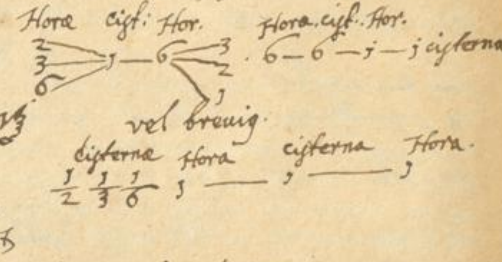 Horæ cist: Hor. Hora. cist. Hor.
2 3
3 1 — 6 2 . 6 — 6 — 1 — 1 cisterna
6 1
vel brevig.
cisternæ Hora cisterna Hora.
1/2 1/3 1/6 1 — 1 — 1